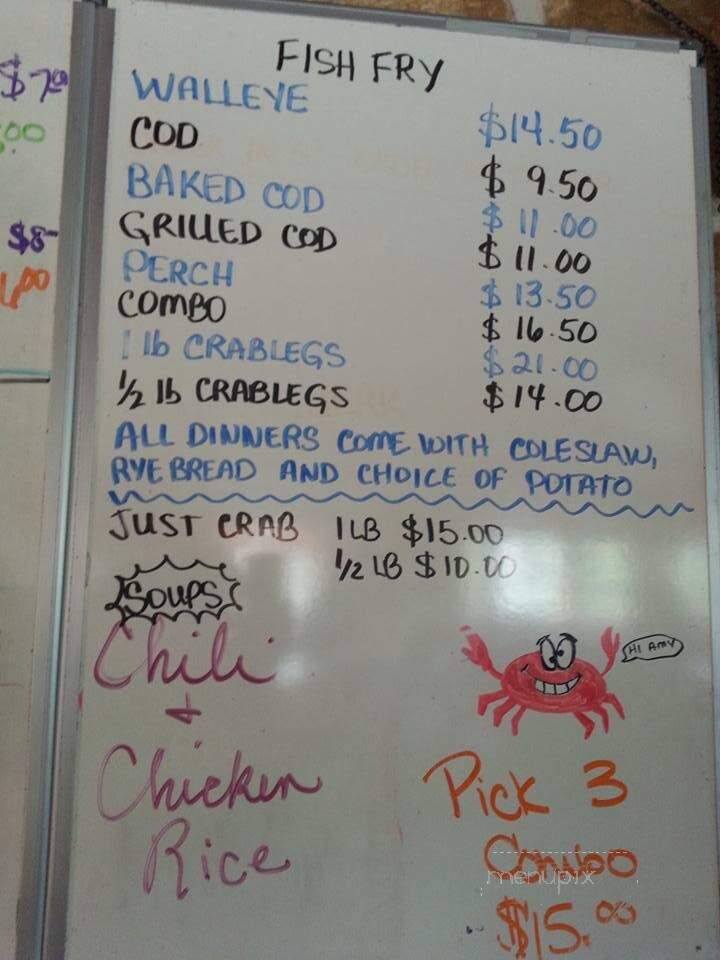 FISH FRY
WALLEYE $14.50
COD $9.50
BAKED COD $11.00
GRILLED COD $11.00
PERCH $13.50
COMBO $16.50
1 lb CRABLEGS $21.00
1/2 lb CRABLEGS $14.00
ALL DINNERS COME WITH COLESLAW,
RYE BREAD AND CHOICE OF POTATO
JUST CRAB 1 LB $15.00
1/2 LB $10.00
SOUPS
Chili
+
Chicken
Rice
HI AMY
Pick 3
Combo
menupix
$15.00
$7.00
5.00
$8-